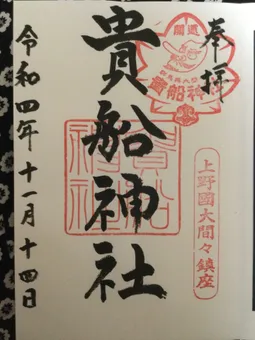 奉拝
開運
貴船神社
上野國大間々鎮座
貴船神社
貴船神社
令和四年十一月十四日